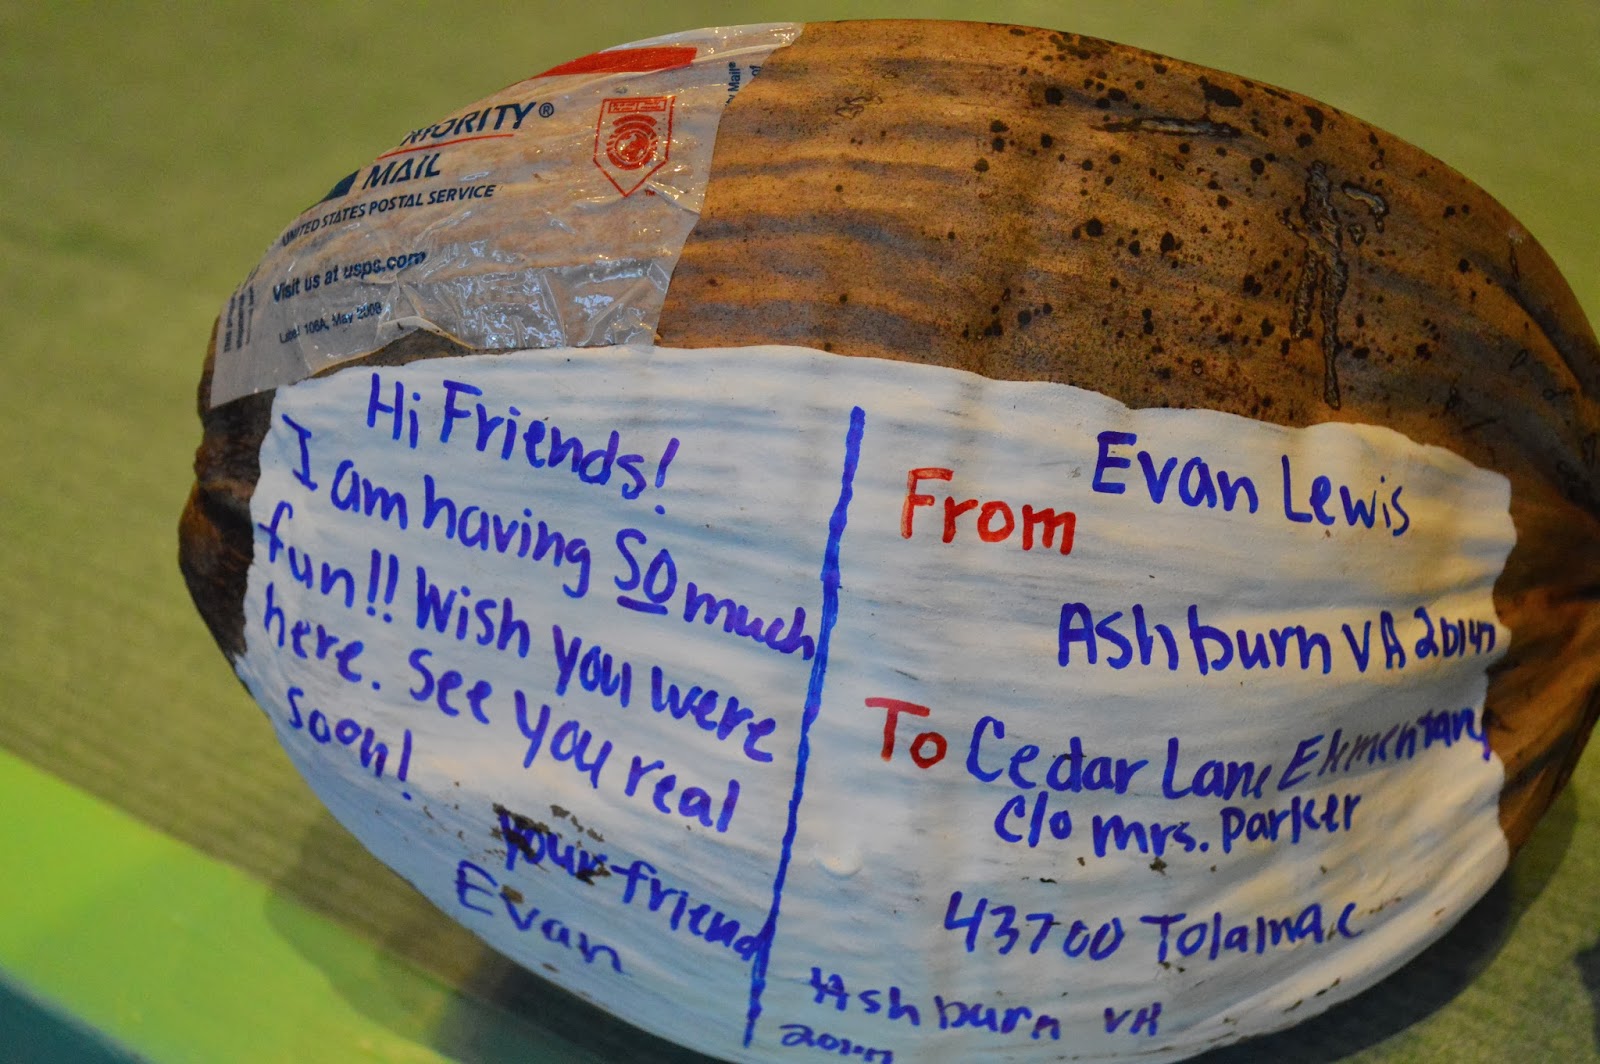 PRIORITY®
MAIL
UNITED STATES POSTAL SERVICE
Visit us at usps.com
Label 106A, May 2008
y Mail®
of
Hi Friends!
I am having SO much
fun!! Wish you were
here. See you real
soon!
your friend
Evan
From Evan Lewis
Ashburn VA 20147
To Cedar Lane Elementary
c/o Mrs. Parker
43700 Tolamac
Ashburn VA
20147